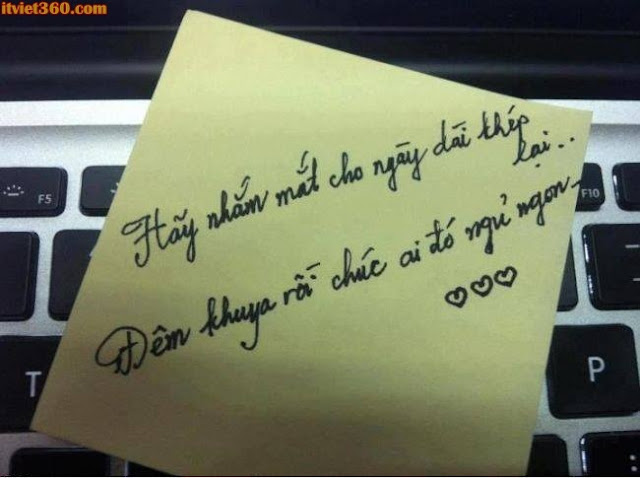 itviet360.com
Hãy nhắm mắt cho ngày dài khép
lại..
Đêm khuya rồi chúc ai đó ngủ ngon
F5
F10
T
P